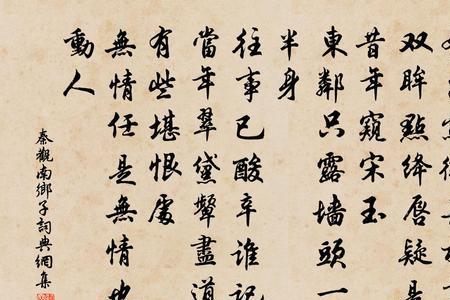 双眸點絳唇疑是
昔年窺宋玉
東鄰只露墙頭一
半身
往事已酸辛誰記
當年翠黛顰盡道
有些堪恨處
無情任是無情也
動人
秦觀南鄉子詞典網集